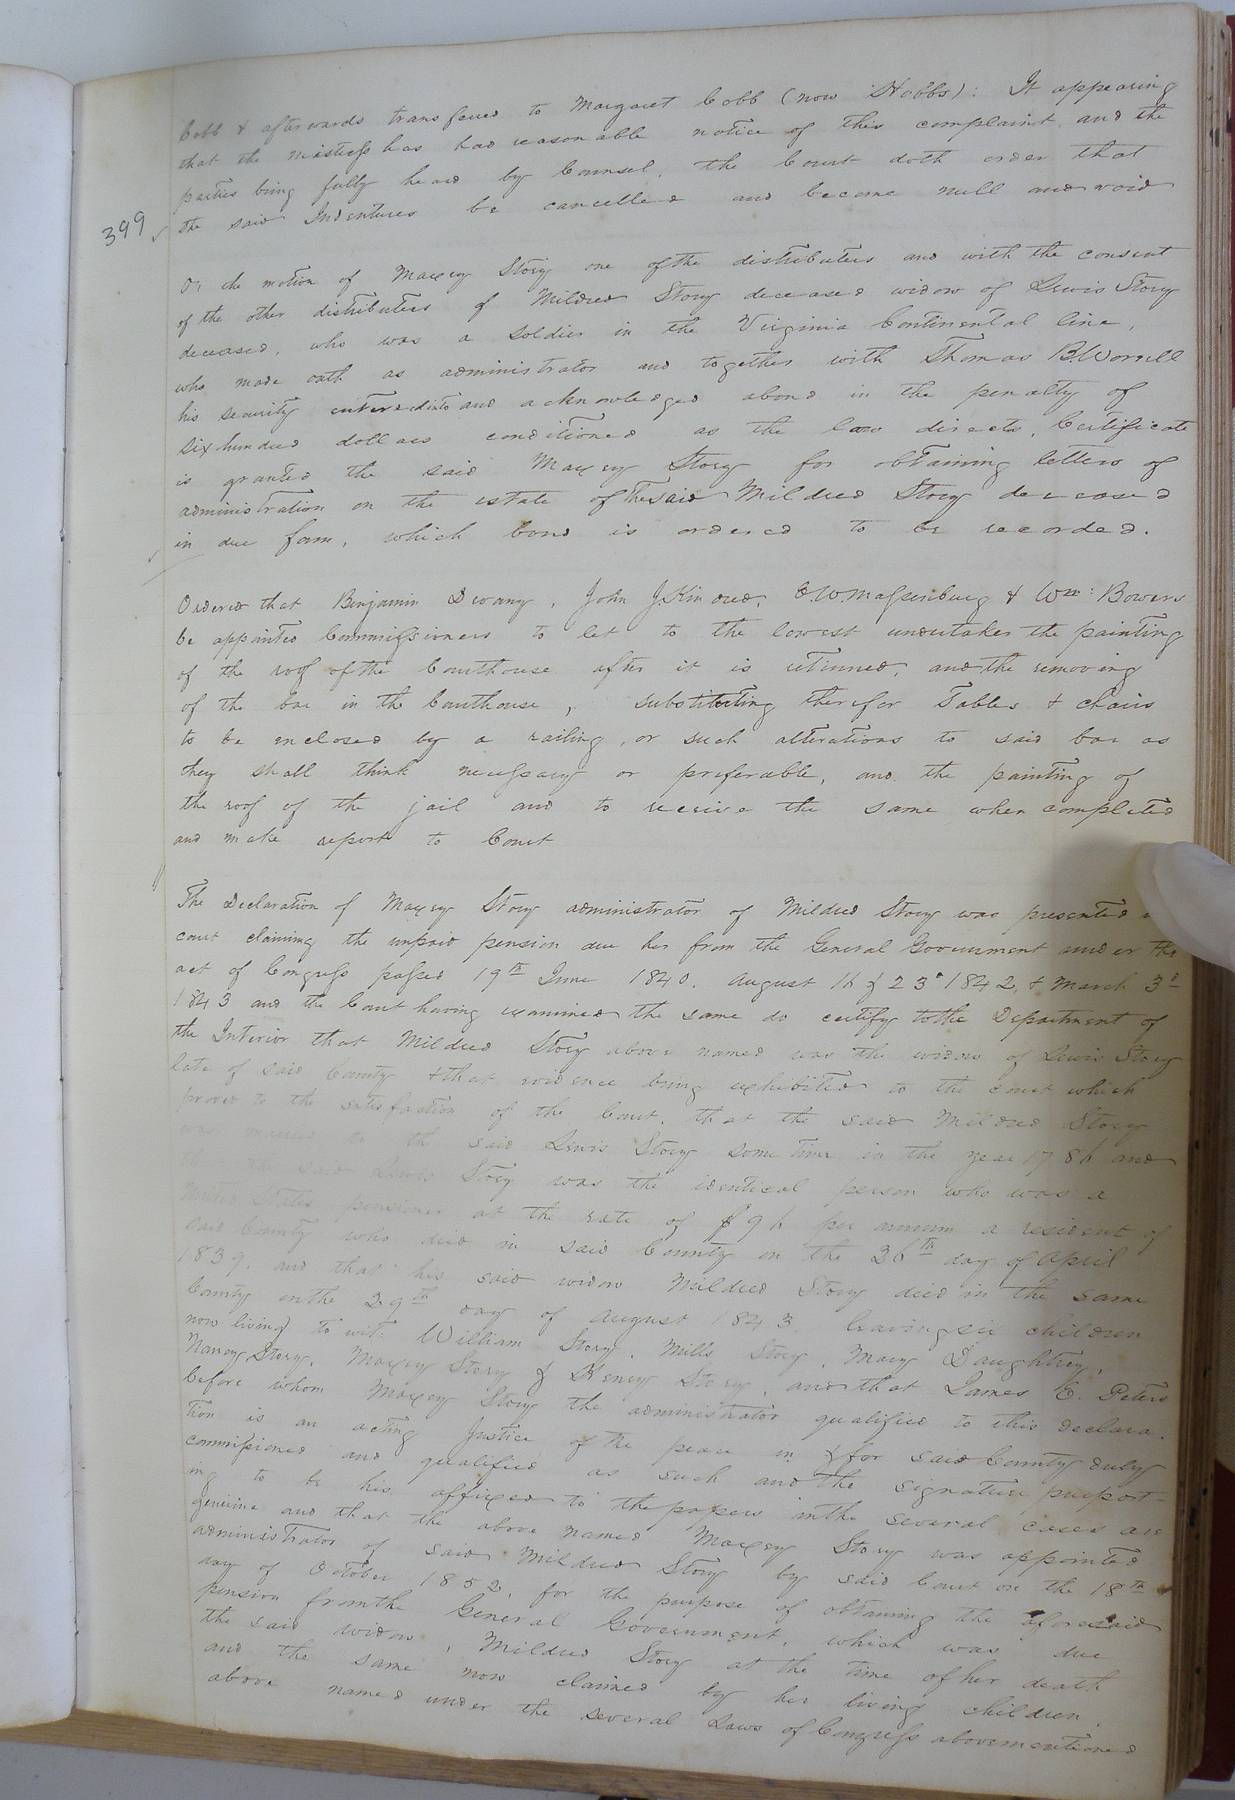 Cobb & afterwards transfered to Margaret Cobb (now Hobbs): It appearing
that the mistress has had reasonable notice of this complaint, and the
parties being fully heard by Counsel, the Court doth order that
the said Indentures be cancelled and become null and void
399
On the motion of Maxcy Story one of the distributees and with the consent
of the other distributees of Mildred Story deceased widow of Lewis Story
deceased, who was a soldier in the Virginia Continental line,
who made oath as administrator and together with Thomas B. Worrell
his security entered into and acknowledged a bond in the penalty of
six hundred dollars conditioned as the law directs, Certificate
is granted the said Maxcy Story for obtaining letters of
administration on the estate of the said Mildred Story deceased
in due form, which bond is ordered to be recorded.
Ordered that Benjamin Devany, John J. Kindred, E. W. Massenburg & Wm: Bowers
be appointed Commissioners to let to the lowest undertaker the painting
of the roof of the Courthouse after it is retinned, and the removing
of the bar in the Courthouse, substituting therefor Tables & chairs
to be enclosed by a railing, or such alterations to said bar as
they shall think necessary or preferable, and the painting of
the roof of the jail and to receive the same when completed
and make report to Court
The Declaration of Maxcy Story administrator of Mildred Story was presented
court claiming the unpaid pension due her from the General Government under the
act of Congress passed 19th June 1840, August 16 & 23d 1842, & March 3d
1843 and the Court having examined the same do certify to the Department of
the Interior that Mildred Story above named was the widow of Lewis Story
late of said County & that evidence being exhibited to the court which
proved to the satisfaction of the Court, that the said Mildred Story
was married to the said Lewis Story some time in the year 1786 and
that the said Lewis Story was the identical person who was a
United States pensioner at the rate of $96 per annum a resident of
said County who died in said County on the 26th day of April
1839, and that his said widow Mildred Story died in the same
County on the 29th day of August 1843. leaving six children
now living to wit: William Story, Mills Story, Mary Daughtrey,
Nancy Story, Maxcy Story & Henry Story, and that James E. Peters
before whom Maxcy Story the administrator qualified to this declara-
tion is an acting Justice of the peace in & for said County duly
commissioned and qualified as such and the signature purport-
ing to be his affixed to the papers in the several cases are
genuine and that the above named Maxcy Story was appointed
administrator of said Mildred Story by said Court on the 18th
day of October 1852, for the purpose of obtaining the aforesaid
pension from the General Government, which was due
the said widow, Mildred Story at the time of her death
and the same now claimed by her living children,
above named under the several Laws of Congress abovementioned